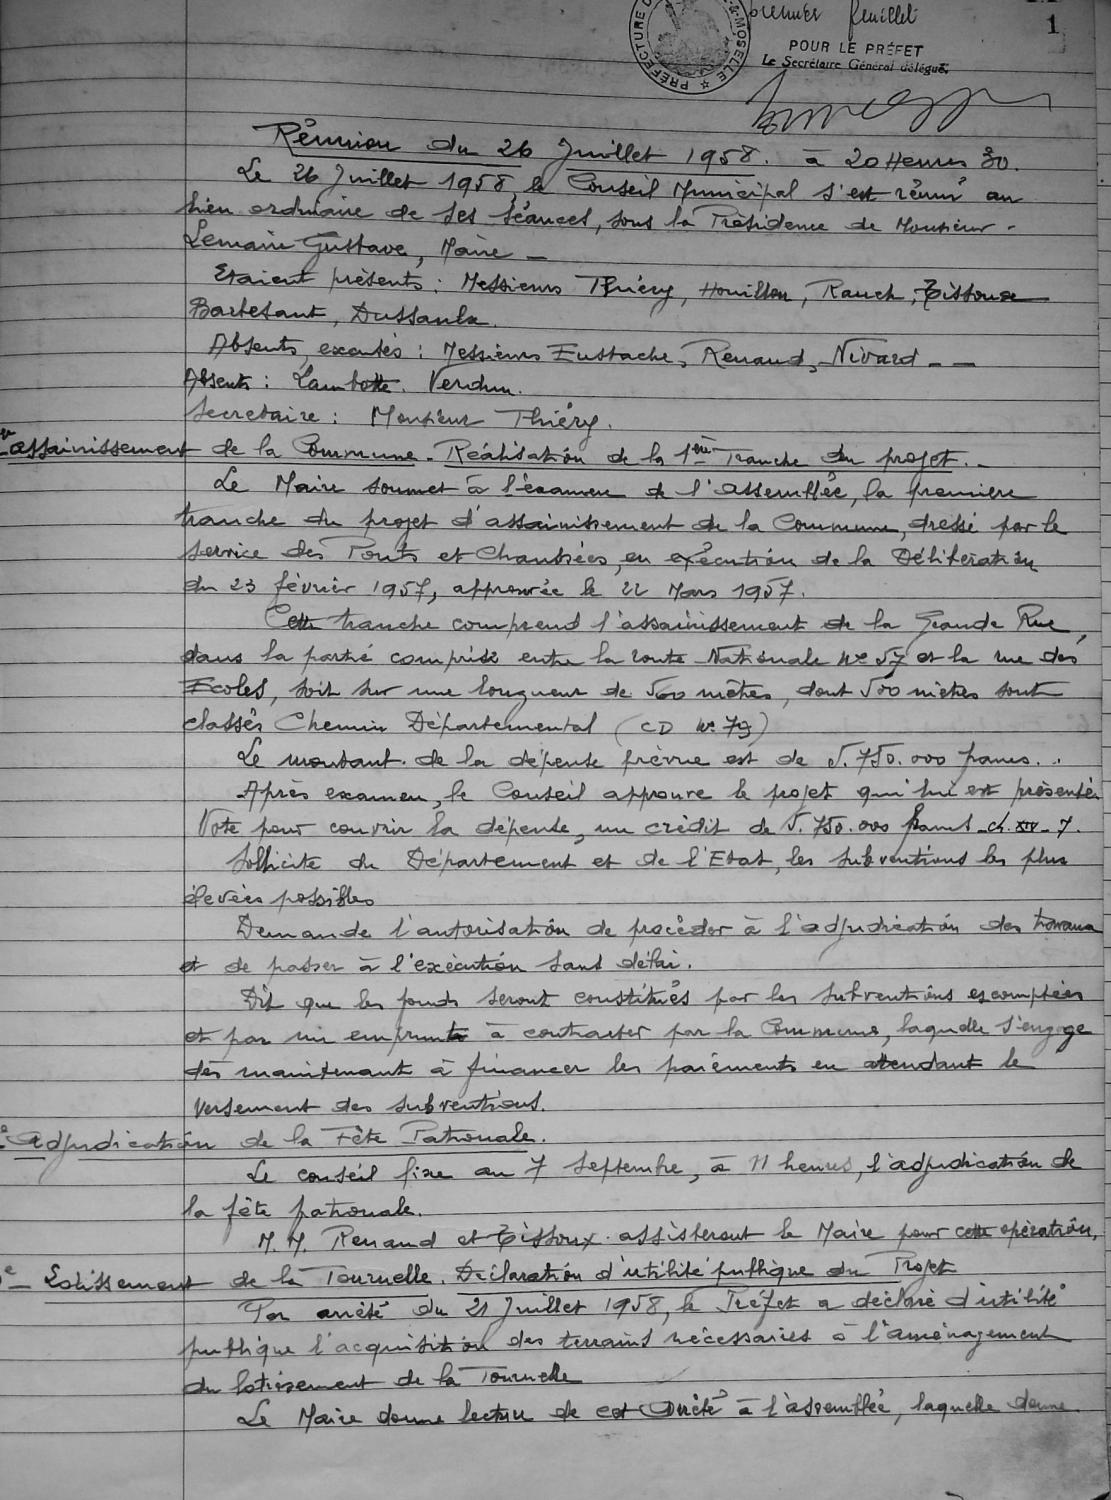 premier feuillet
1
PRÉFECTURE D &-MOSELLE
POUR LE PRÉFET
Le Secrétaire Général délégué,
Réunion du 26 Juillet 1958. à 20 Heures 30.
Le 26 Juillet 1958, le Conseil Municipal s'est réuni au
lieu ordinaire de ses séances, sous la Présidence de Monsieur -
Lemaire Gustave, Maire -
Etaient présents : Messieurs Thiéry, Houillon, Rauch, Tissoux
Bartesant, Dussaulx.
Absents excusés : Messieurs Eustache, Renaud, Nivard - -
Absents : Lambotte. Verdun.
Secrétaire : Monsieur Thiéry.
assainissement de la Commune - Réalisation de la 1ère Tranche du projet. -
Le Maire soumet à l'examen de l'assemblée, la première
tranche du projet d'assainissement de la Commune, dressé par le
service des Ponts et Chaussées, en exécution de la Délibération
du 23 février 1957, approuvée le 22 Mars 1957.
Cette tranche comprend l'assainissement de la Grande Rue,
dans la partie comprise entre la route Nationale N° 57 et la rue des
Ecoles, soit sur une longueur de 560 mètres, dont 500 mètres sont
classés Chemin Départemental (CD N° 79)
Le montant de la dépense prévue est de 5.750.000 francs. .
Après examen, le Conseil approuve le projet qui lui est présenté
Vote pour couvrir la dépense, un crédit de 5.750.000 francs - ch. XIV - 7.
Sollicite du Département et de l'Etat, les subventions les plus
élevées possibles
Demande l'autorisation de procéder à l'adjudication des travaux
et de passer à l'exécution sans délai.
Dit que les fonds seront constitués par les subventions escomptées
et par un emprunt à contracter par la Commune, laquelle s'engage
dès maintenant à financer les paiements en attendant le
versement des subventions.
2° Adjudication de la Fête Patronale.
Le conseil fixe au 7 Septembre, à 11 heures, l'adjudication de
la fête patronale.
M.M. Renaud et Tissoux assisteront le Maire pour cette opération.
3e - Lotissement de la Tournelle. Déclaration d'utilité publique du Projet
Par arrêté du 21 Juillet 1958, le Préfet a déclaré d'utilité
publique l'acquisition des terrains nécessaires à l'aménagement
du lotissement de la Tournelle
Le Maire donne lecture de cet Arrêté à l'assemblée, laquelle donne